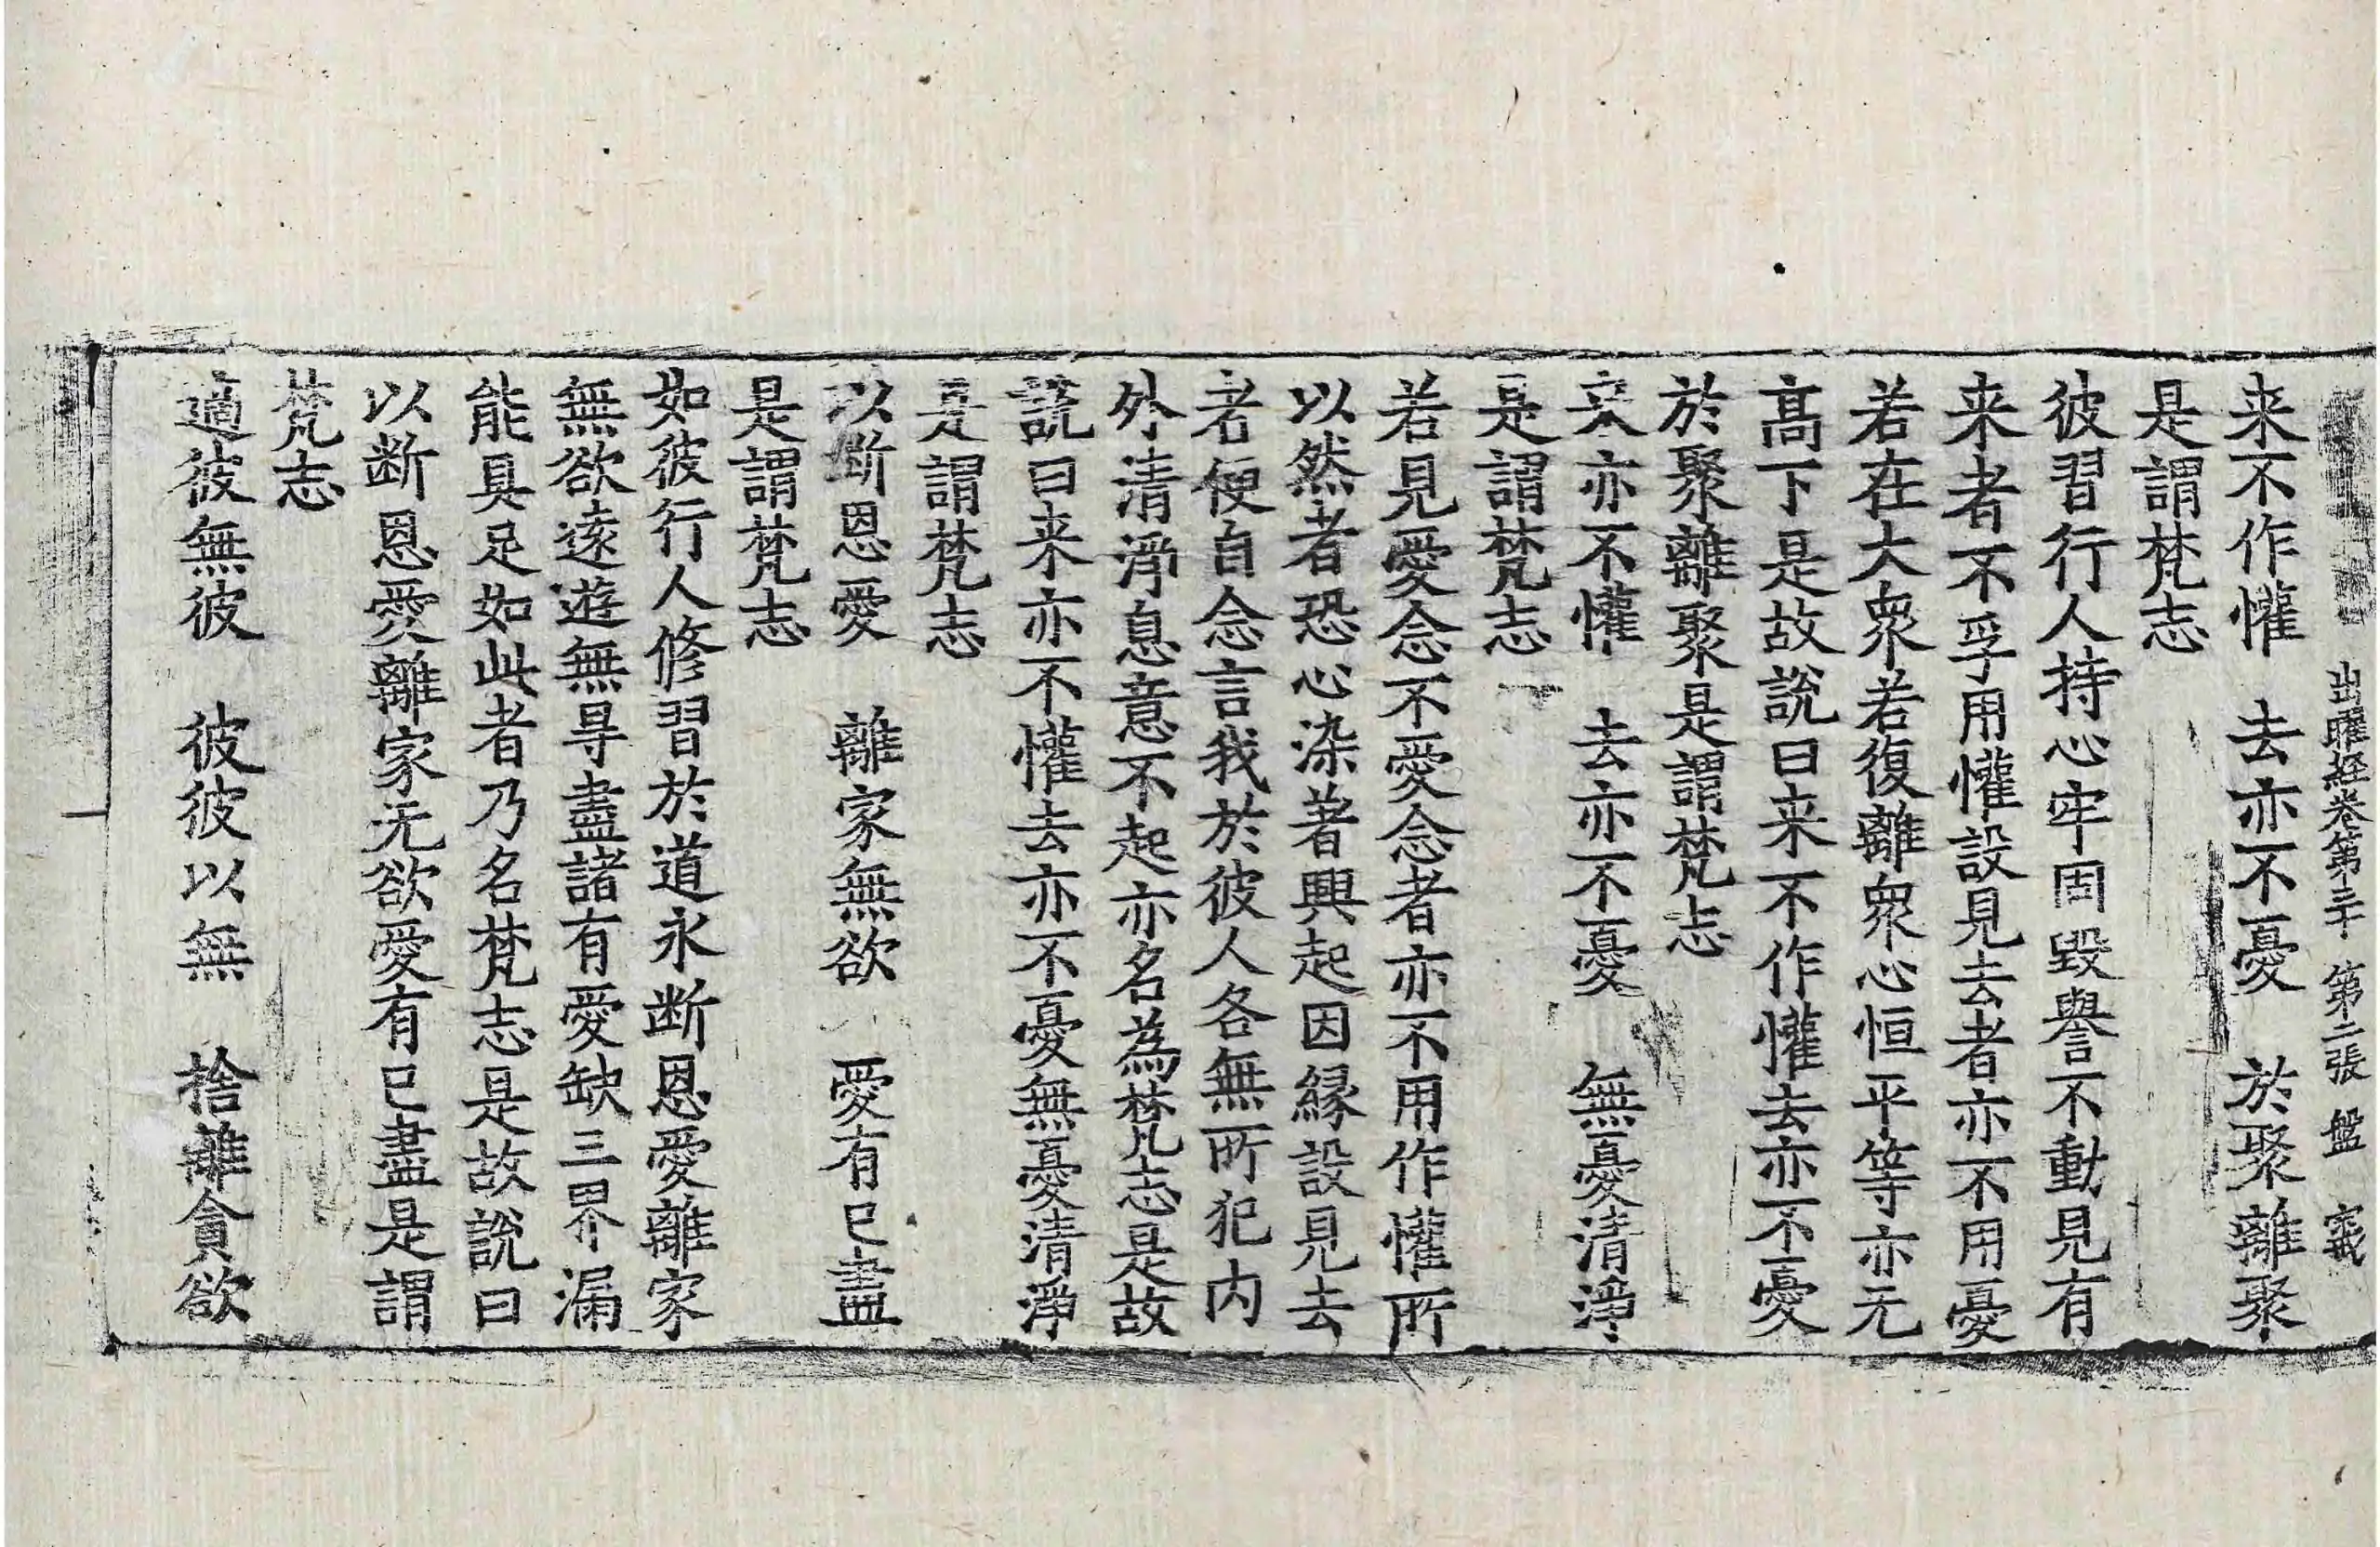 出曜経卷第三十 第二張 盤
来不作懽 去亦不憂 於聚離聚
是謂梵志
彼習行人持心牢固毀譽不動見有
来者不孚用懽設見去者亦不用憂
若在大衆若復離衆心恒平等亦无
髙下是故說曰来不作懽去亦不憂
於聚離聚是謂梵志
来亦不懽 去亦不憂 無憂清淨
是謂梵志
若見愛念不愛念者亦不用作懽所
以然者恐心染著興起因縁設見去
者便自念言我於彼人各無所犯内
外清淨息意不起亦名為梵志是故
說曰来亦不懽去亦不憂無憂清淨
是謂梵志
以断恩愛 離家無欲 愛有已盡
是謂梵志
如彼行人修習於道永断恩愛離家
無欲遠遊無㝵盡諸有愛缺三界漏
能具足如此者乃名梵志是故說曰
以断恩愛離家无欲愛有已盡是謂
梵志
適彼無彼 彼彼以無 捨離貪欲